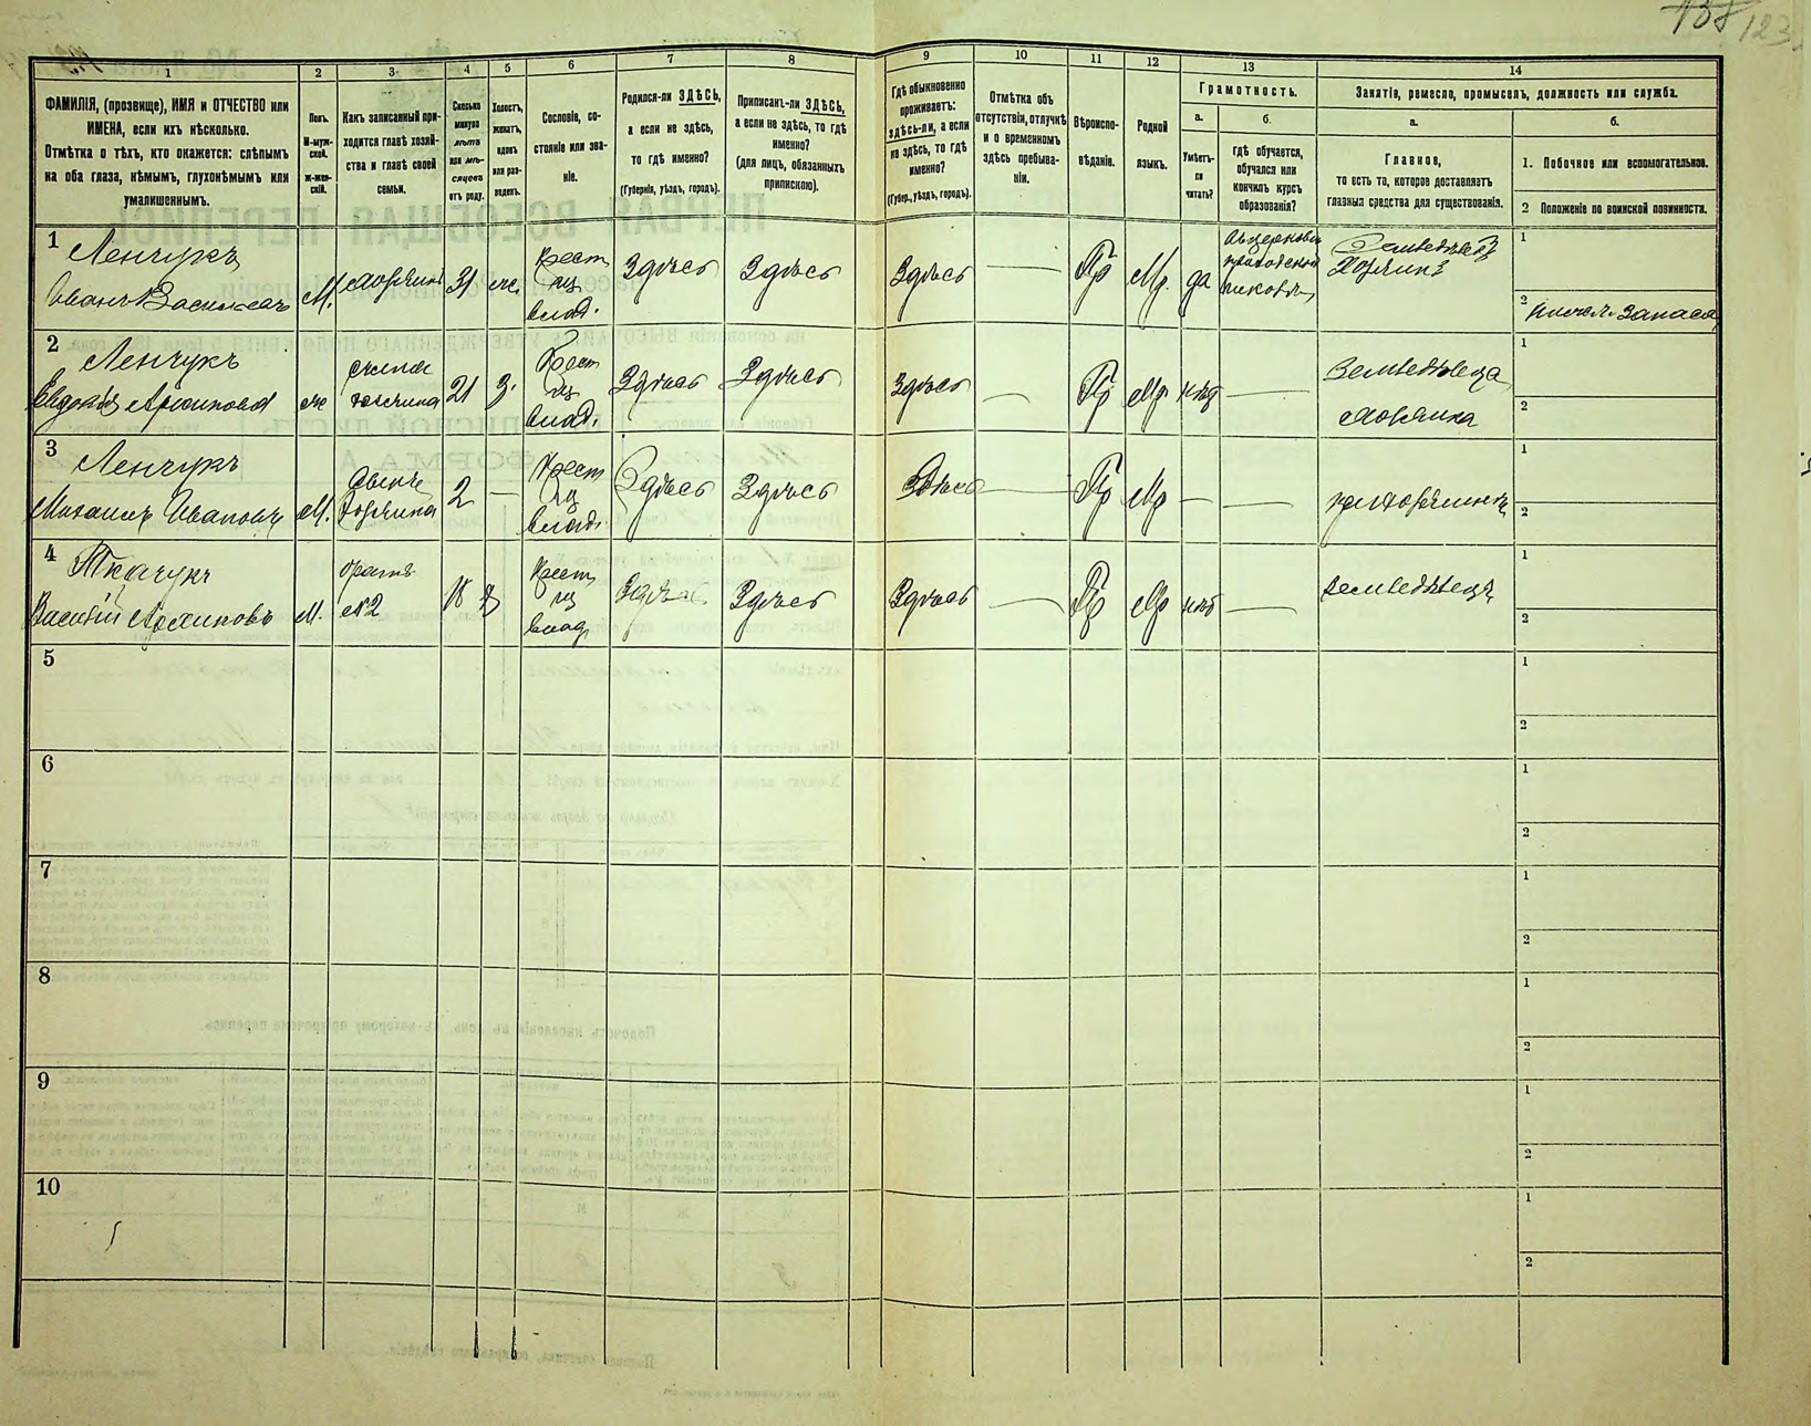 138 123
1 2 3 4 5 6 7 8 9 10 11 12 13 14
ФАМИЛІЯ, (прозвище), ИМЯ и ОТЧЕСТВО или
ИМЕНА, если ихъ нѣсколько.
Отмѣтка о тѣхъ, кто окажется: слѣпымъ
на оба глаза, нѣмымъ, глухонѣмымъ или
умалишеннымъ.
Полъ.
М-муж-
ской.
ж-жен-
скій.
Какъ записанный при-
ходится главѣ хозяй-
ства и главѣ своей
семьи.
Сколько
минуло
лѣтъ
или мѣ-
сяцевъ
отъ роду.
Холостъ,
женатъ,
вдовъ
или раз-
веденъ.
Сословіе, со-
стояніе или зва-
ніе.
Родился-ли ЗДѢСЬ,
а если не здѣсь,
то гдѣ именно?
(Губернія, уѣздъ, городъ).
Приписанъ-ли ЗДѢСЬ,
а если не здѣсь, то гдѣ
именно?
(для лицъ, обязанныхъ
припискою).
Гдѣ обыкновенно
проживаетъ:
здѣсь-ли, а если
не здѣсь, то гдѣ
именно?
(Губер., уѣздъ, городъ).
Отмѣтка объ
отсутствіи, отлучкѣ
и о временномъ
здѣсь пребыва-
ніи.
Вѣроиспо-
вѣданіе.
Родной
языкъ.
Грамотность.
а.
Умѣетъ-
ли
читать?
б.
Гдѣ обучается,
обучался или
кончилъ курсъ
образованія?
Занятіе, ремесло, промыселъ, должность или служба.
а.
Главное,
то есть то, которое доставляетъ
главныя средства для существованія.
б.
1. Побочное или вспомогательное.
2 Положеніе по воинской повинности.
1 Ленчукъ
Иванъ Васильевъ
М.
31
Крест
влад.
Здѣсь
Здѣсь
Здѣсь
Пр
Мр.
да
1
2 запаса
2 Ленчукъ
Архипова
21
З.
Крест
влад.
Здѣсь
Здѣсь
Здѣсь
Пр
Мр.
нѣт
1
2
3 Ленчукъ
Михаилъ Ивановъ
М.
2
Крест
влад.
Здѣсь
Здѣсь
Здѣсь
Пр
Мр
1
2
4 Ткачукъ
Василій Архиповъ
М.
братъ
№2
18
Крест
влад
Здѣсь
Здѣсь
Здѣсь
Пр
Мр
нѣт
земледѣлецъ
1
2
5
1
2
6
1
2
7
1
2
8
1
2
9
1
2
10
1
2